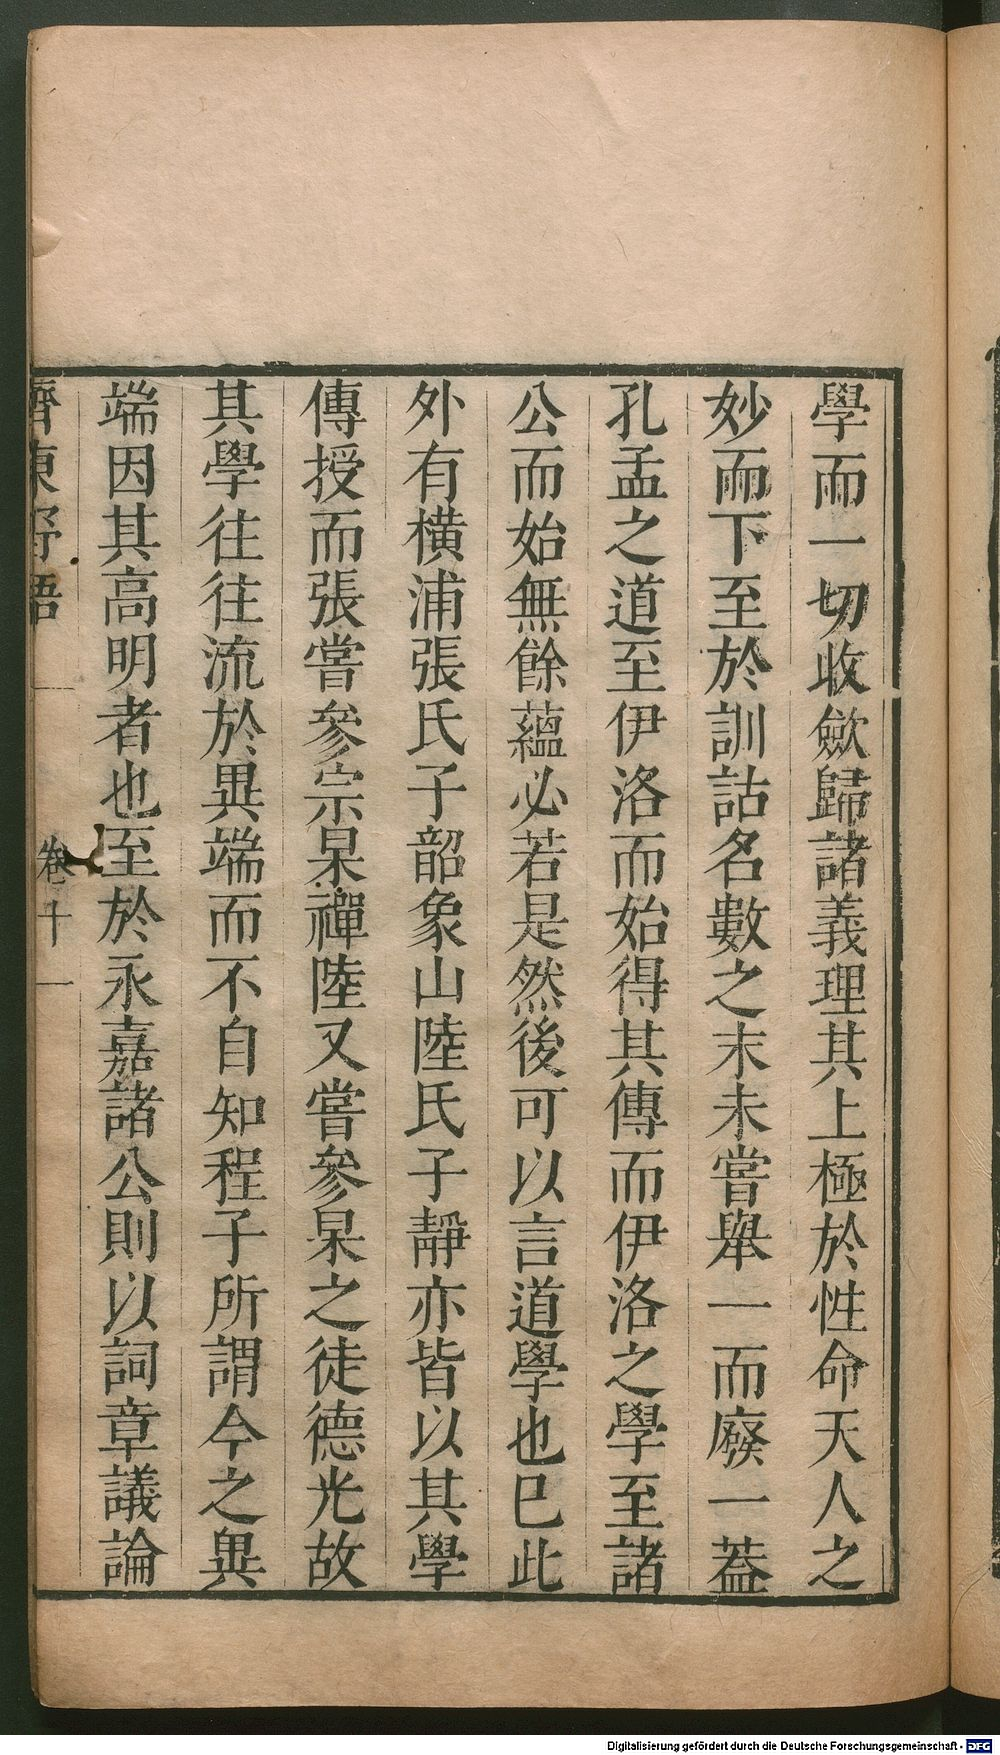 學而一切收斂歸諸義理其上極於性命天人之
妙而下至於訓詁名數之末未嘗舉一而廢一葢
孔孟之道至伊洛而始得其傳而伊洛之學至諸
公而始無餘蘊必若是然後可以言道學也巳此
外有橫浦張氏子韶象山陸氏子靜亦皆以其學
傳授而張嘗參宗杲禪陸又嘗參杲之徒德光故
其學往往流於異端而不自知程子所謂今之異
端因其高明者也至於永嘉諸公則以詞章議論
齊東野語
卷十一
Digitalisierung gefördert durch die Deutsche Forschungsgemeinschaft - DFG